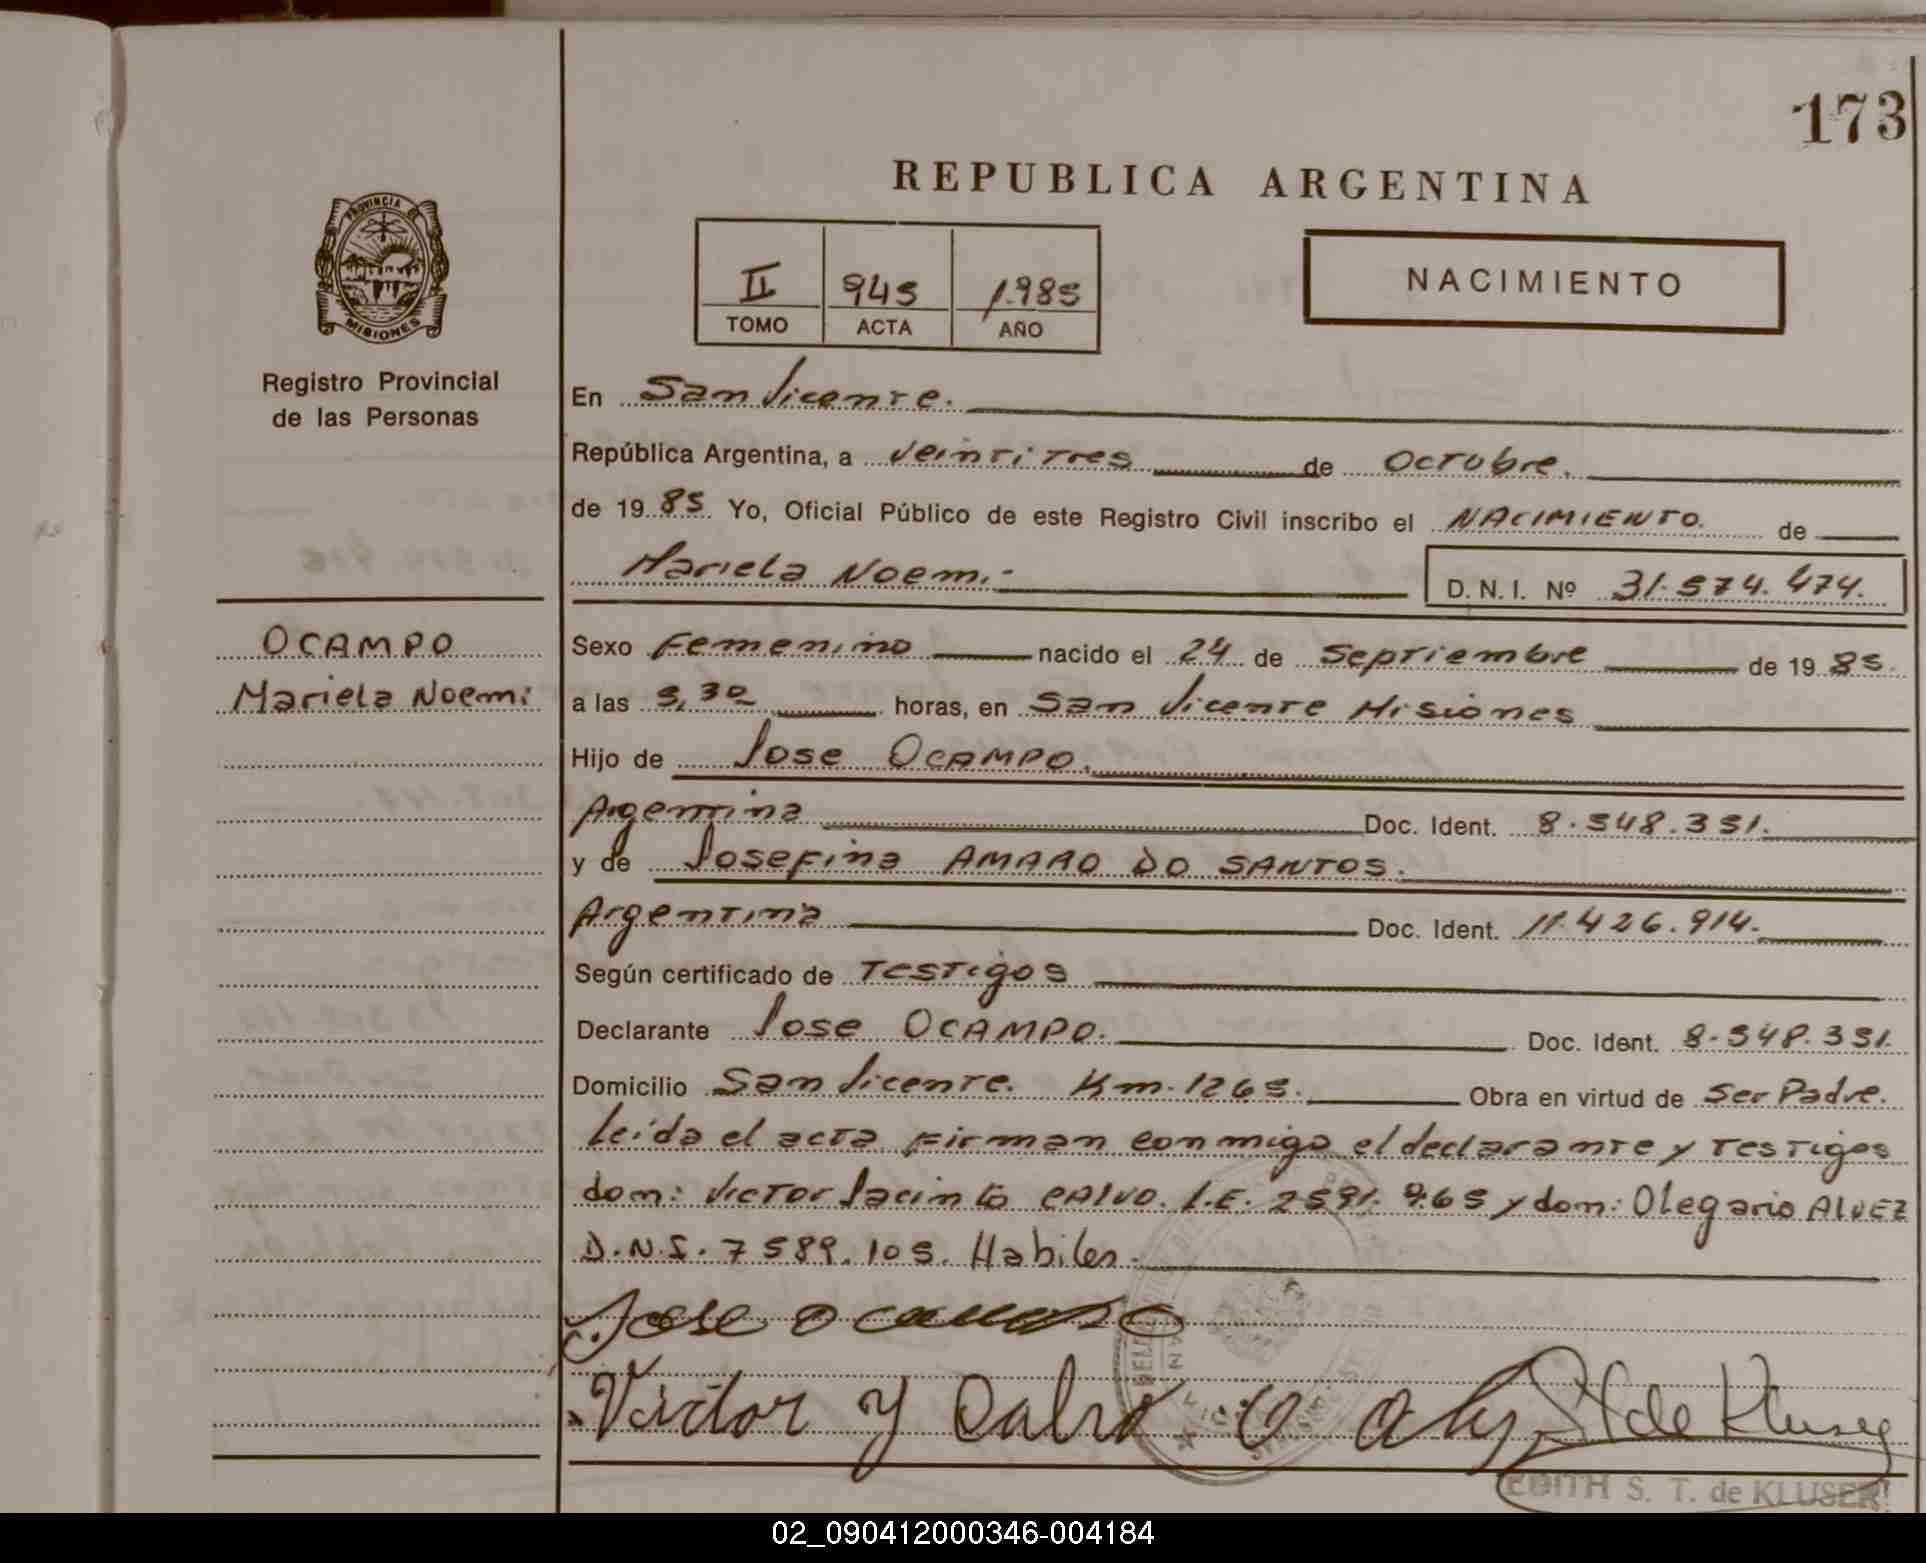 173
REPUBLICA ARGENTINA
PROVINCIA DE
MISIONES
II 945 1.985
TOMO ACTA AÑO
NACIMIENTO
Registro Provincial
de las Personas
En San Vicente.
República Argentina, a Veintitres de Octubre.
de 19 85 Yo, Oficial Público de este Registro Civil inscribo el NACIMIENTO. de
Mariela Noemi.-
D. N. I. Nº 31.574.474.
OCAMPO
Mariela Noemi
Sexo Femenino nacido el 24 de Septiembre de 19 85.
a las 5,30 horas, en San Vicente Misiones
Hijo de Jose OCAMPO.
Argentina Doc. Ident. 8.548.351.
y de Josefina AMARO DO SANTOS.
Argentina Doc. Ident. 11.426.914.
Según certificado de Testigos
Declarante Jose OCAMPO. Doc. Ident. 8.548.351.
Domicilio San Vicente. Km. 1265. Obra en virtud de Ser Padre.
Leida el acta firman conmigo el declarante y Testigos
dom: Victor Jacinto CALVO. L.E. 2591.965 y dom: Olegario ALVEZ
D.N.I. 7589.105. Habiles.
Jose Ocampo
Victor Y Calvo O alv St de Kluser
EDITH S. T. de KLUSER
02_090412000346-004184